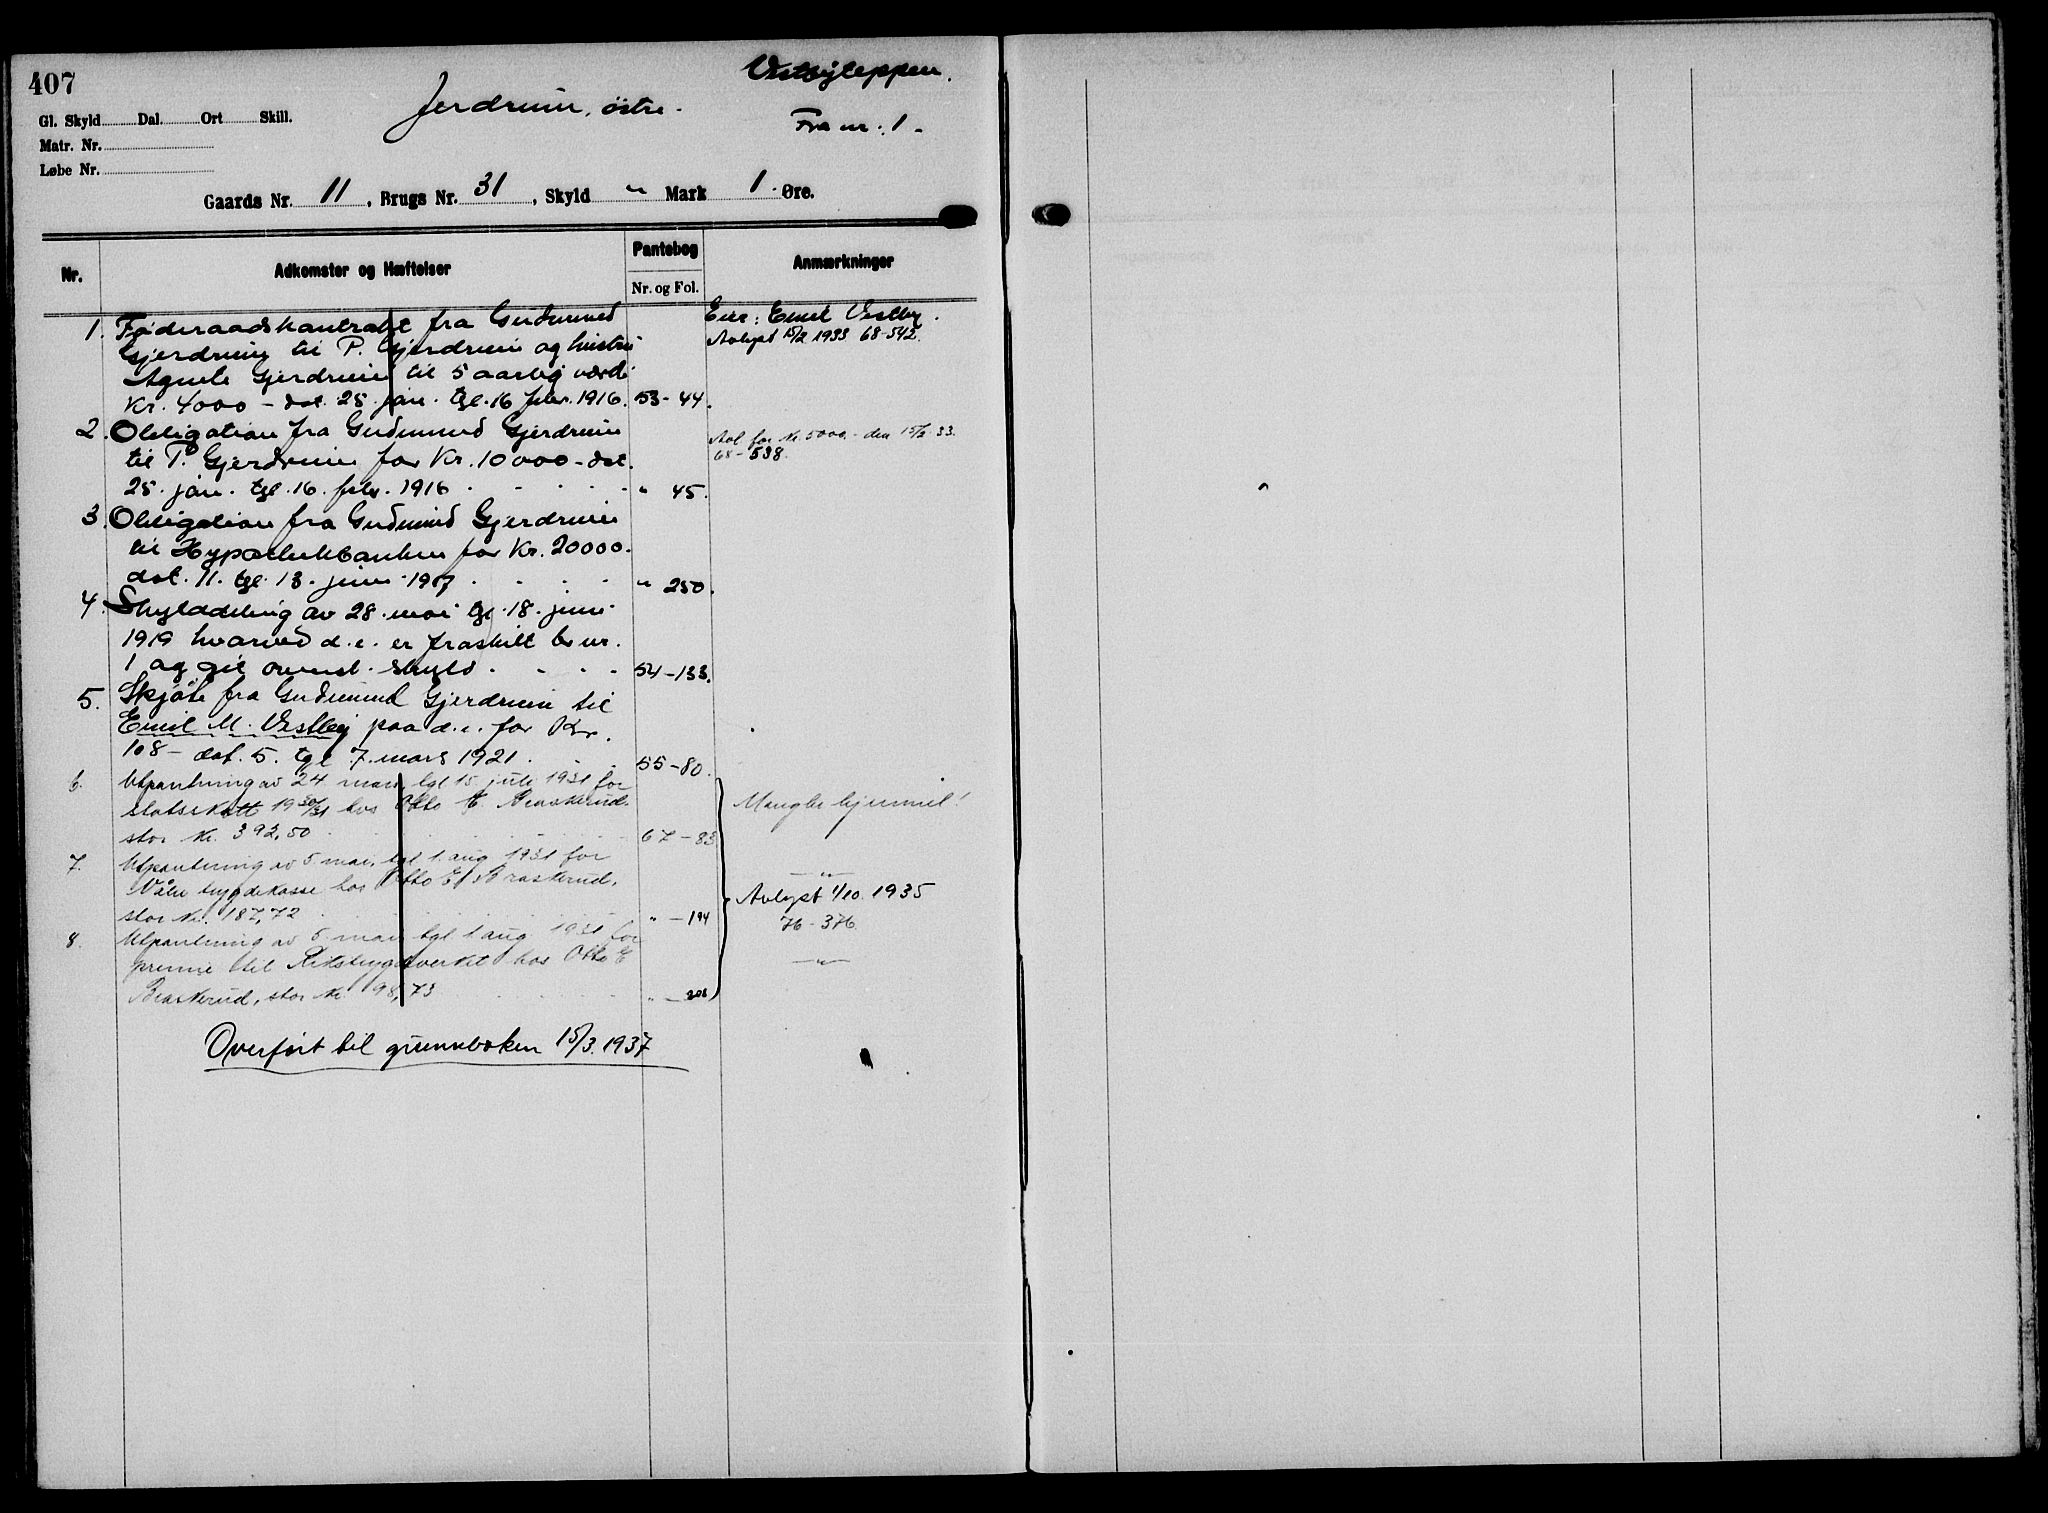 407
Vestbyteppen.
Jerdrum, østre.
Fra nr. 1.
Gl. Skyld Dal. Ort Skill.
Matr. Nr.
Løbe Nr.
Gaards Nr. 11, Brugs Nr. 31, Skyld " Mark 1. Øre.
Nr. Adkomster og Hæftelser Pantebog Anmærkninger
Nr. og Fol.
1. Føderaadskontrakt fra Gudmund Eier: Emil Vestby.
Gjerdrum til P. Gjerdrum og hustru Avlyst 15/2 1933 68-542.
Agnete Gjerdrum til 5 aarlig værdi
Kr. 4000 - dat. 25. jan. tgl. 16 febr. 1916. 53-44.
2. Obligation fra Gudmund Gjerdrum Avl for kr. 5000.- den 15/2 33.
til P. Gjerdrum for Kr. 10000 - dat. 68-538.
25. jan. tgl. 16. febr. 1916 " 45.
3. Obligation fra Gudmund Gjerdrum
til Hypothekbanken for Kr. 20000.
dat. 11. tgl. 13. juni 1917 " 250.
4. Skylddeling av 28. mai tgl. 18. juni
1919 hvorved d. e. er fraskilt br. nr.
1 og git ovenst. skyld. 54-133.
5. Skjøte fra Gudmund Gjerdrum til
Emil M. Vestby paa d. e. for Kr.
108- dat. 5. tgl 7. mars 1921. 55-80.
6. Utpantning av 24 mars tgl 15 juli 1931 for
statsskatt 1930/31 hos Otto E. Braskerud. Mangler hjemmel!
stor kr. 392,50 67-83
7. Utpantning av 5 mai, tgl 1 aug 1931 for
Våler trygdekasse hos Otto E. Braskerud, "
stor kr. 187,72 " - 194 Avlyst 1/10. 1935
76-376.
8. Utpantning av 5 mai tgl 1 aug 1931 for
premie til Rikstrygdeverket hos Otto E "
Braskerud, stor kr 98,73 "
Overført til grunnboken 15/3. 1937